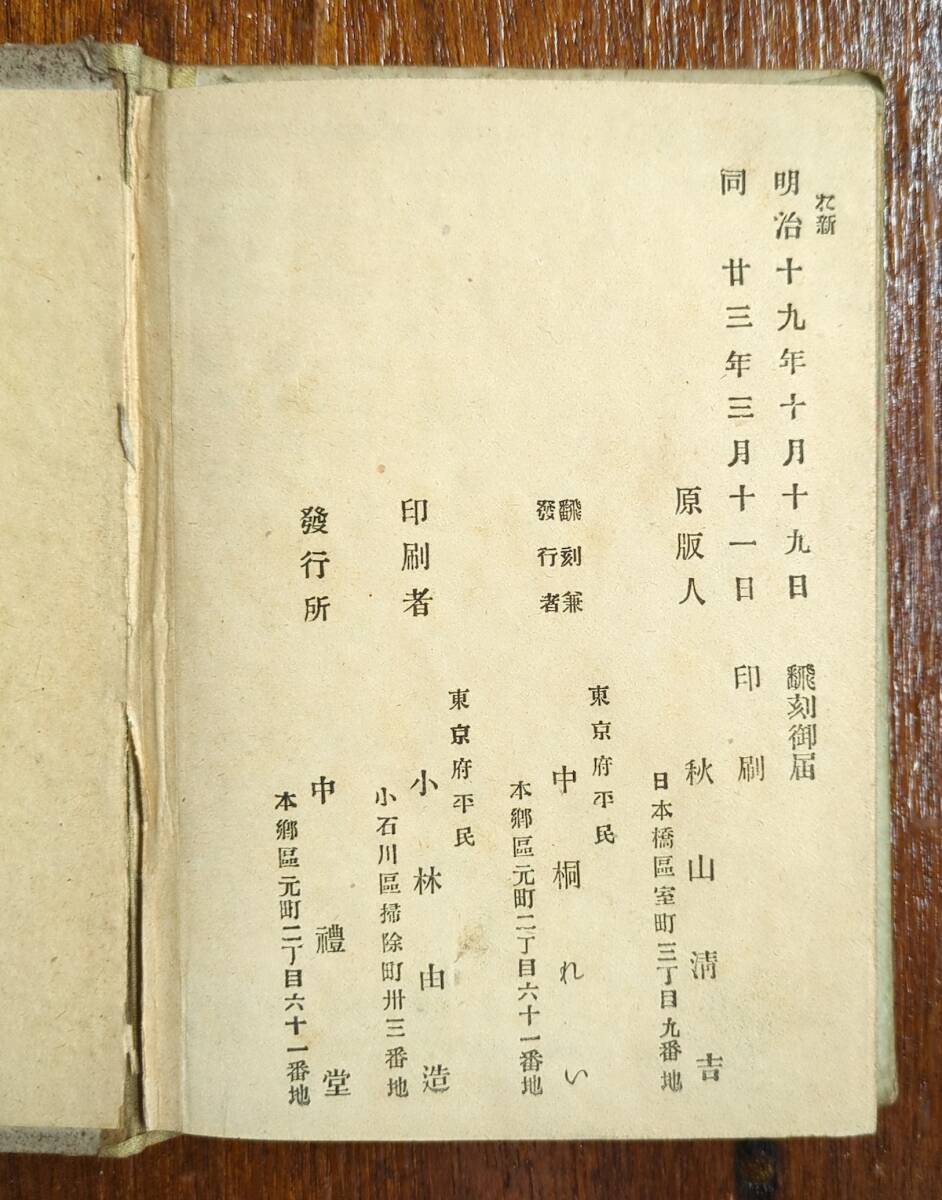 れ新
明治十九年十月十九日 飜刻御届
同 廿三年三月十一日 印刷
原版人 秋山淸吉
日本橋區室町三丁目九番地
東京府平民
飜刻兼
發行者 中桐れい
本鄕區元町二丁目六十一番地
東京府平民
印刷者 小林由造
小石川區掃除町卅三番地
發行所 中禮堂
本鄕區元町二丁目六十一番地